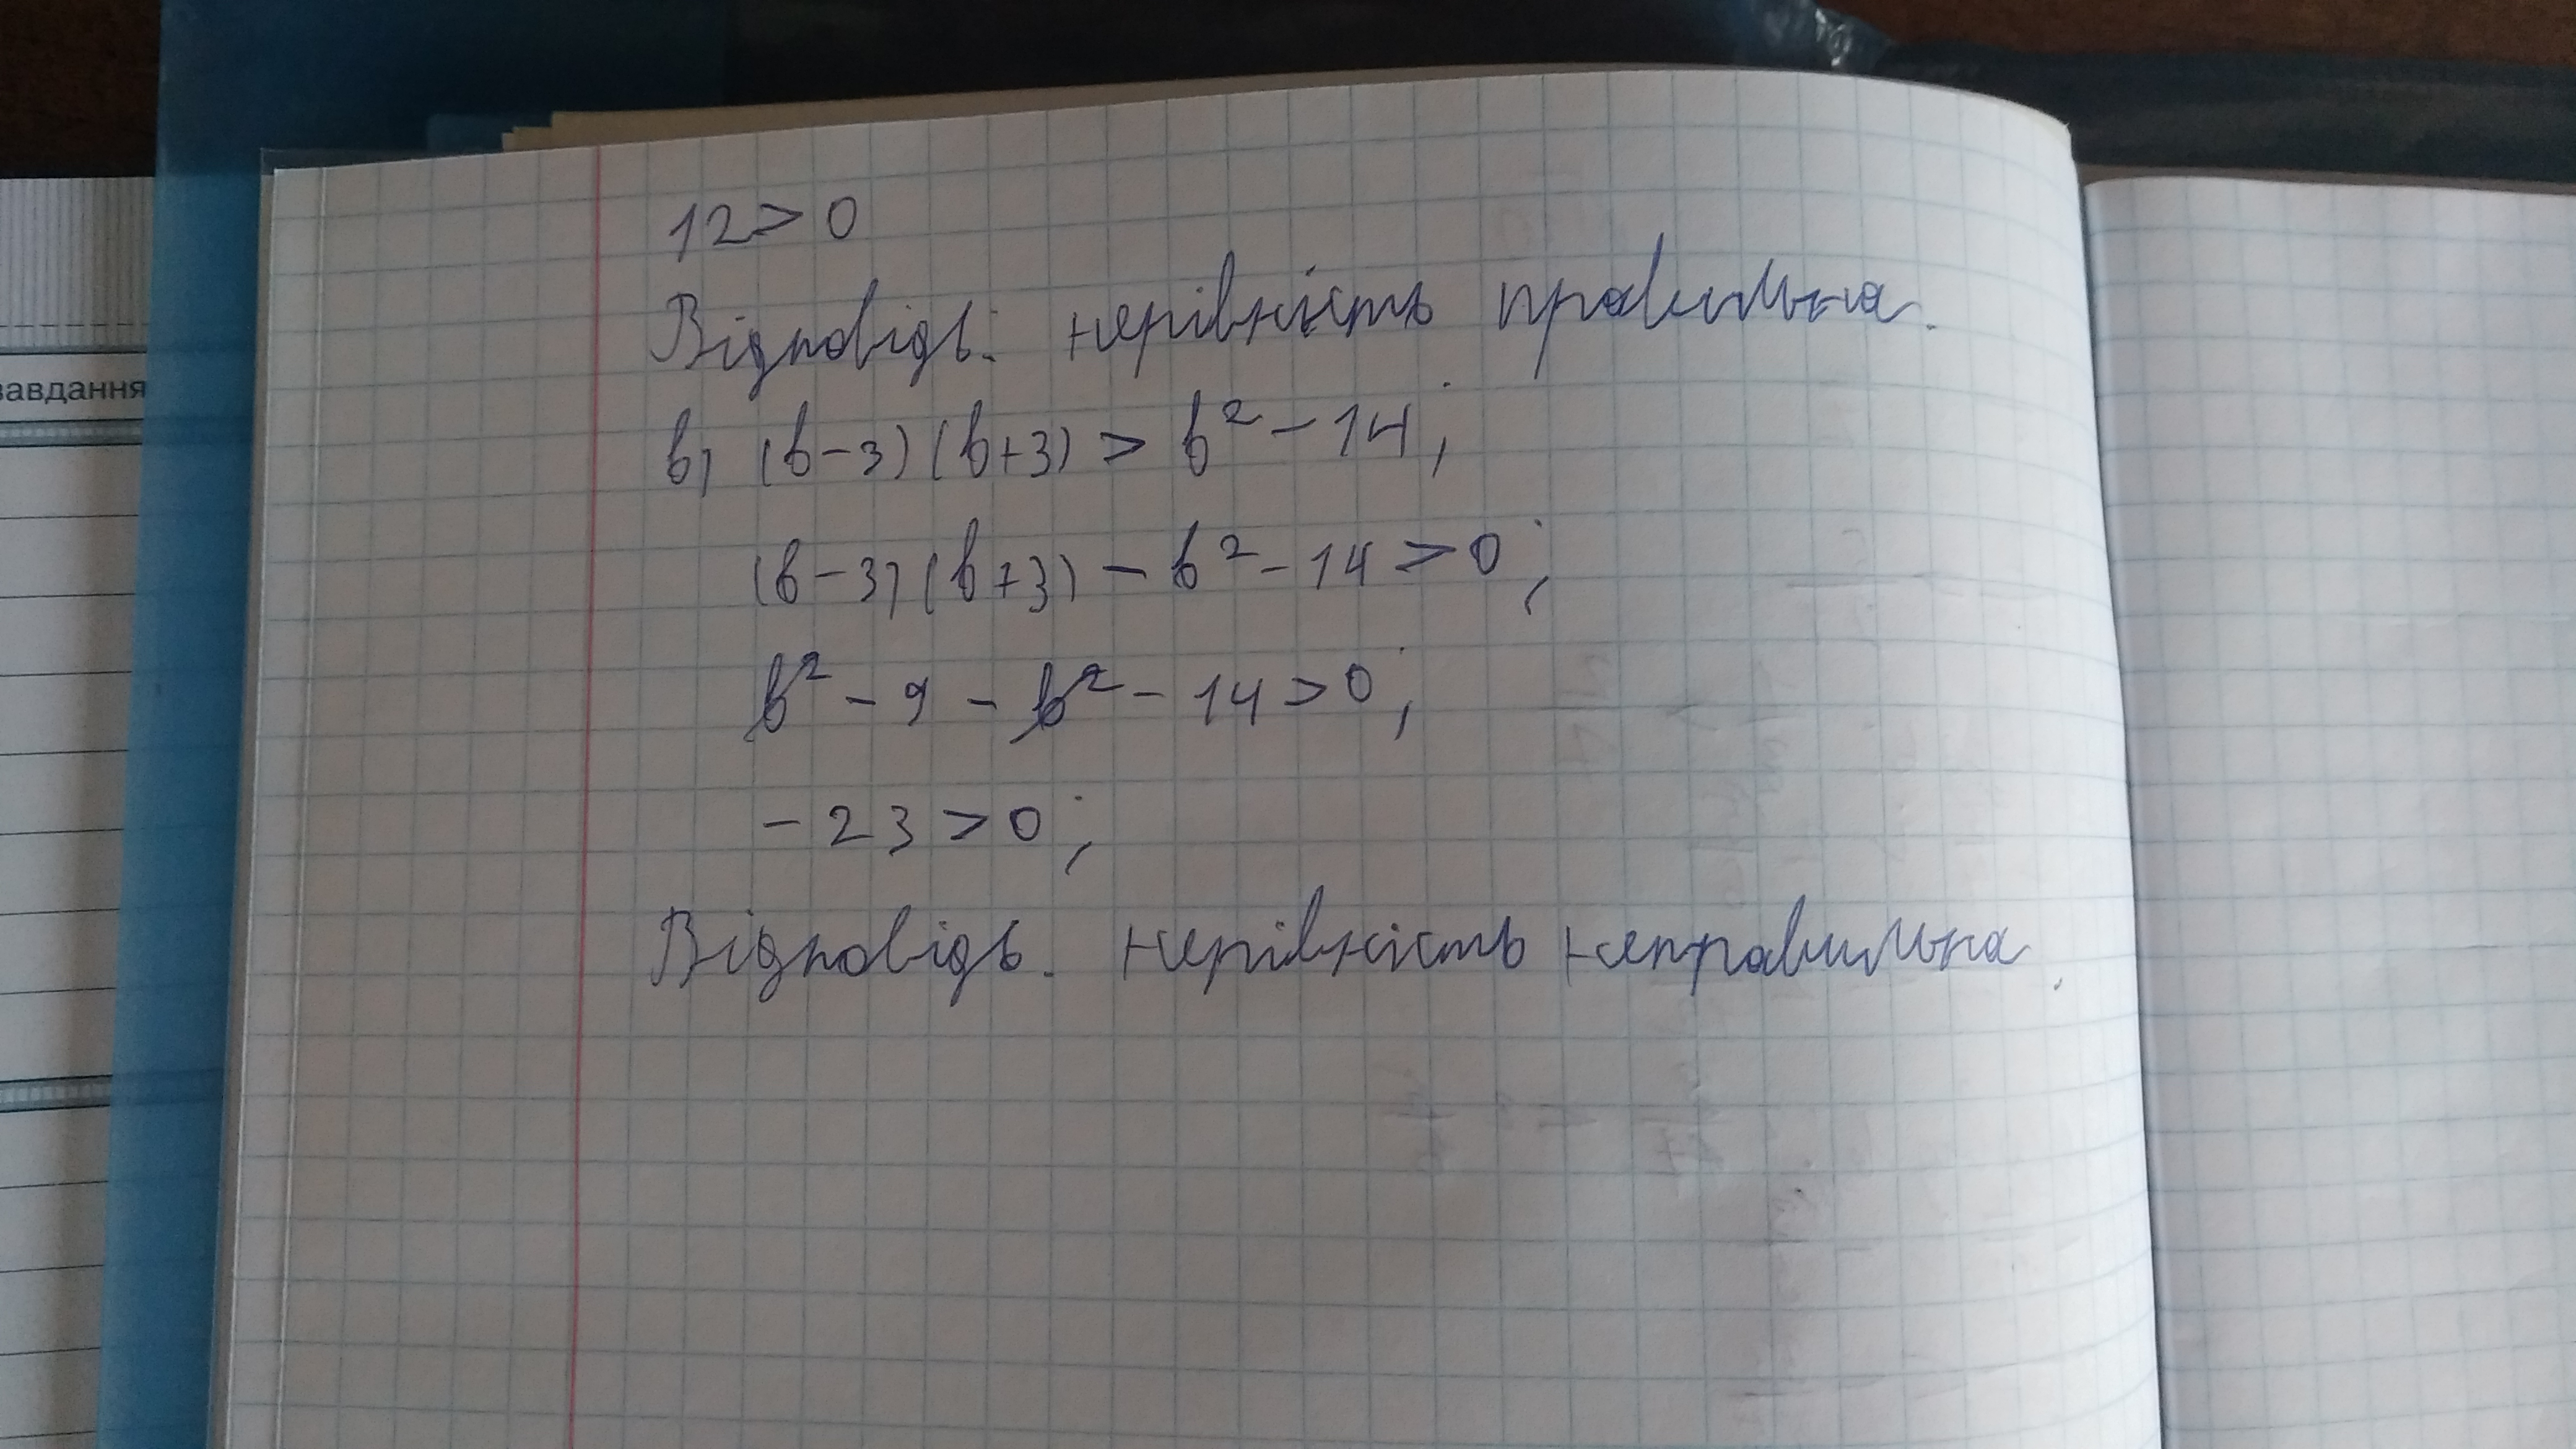 завдання
12 > 0
Відповідь: нерівність правильна.
в) (b-3)(b+3) > b² - 14;
(b-3)(b+3) - b² - 14 > 0;
b² - 9 - b² - 14 > 0;
- 23 > 0;
Відповідь. нерівність неправильна.